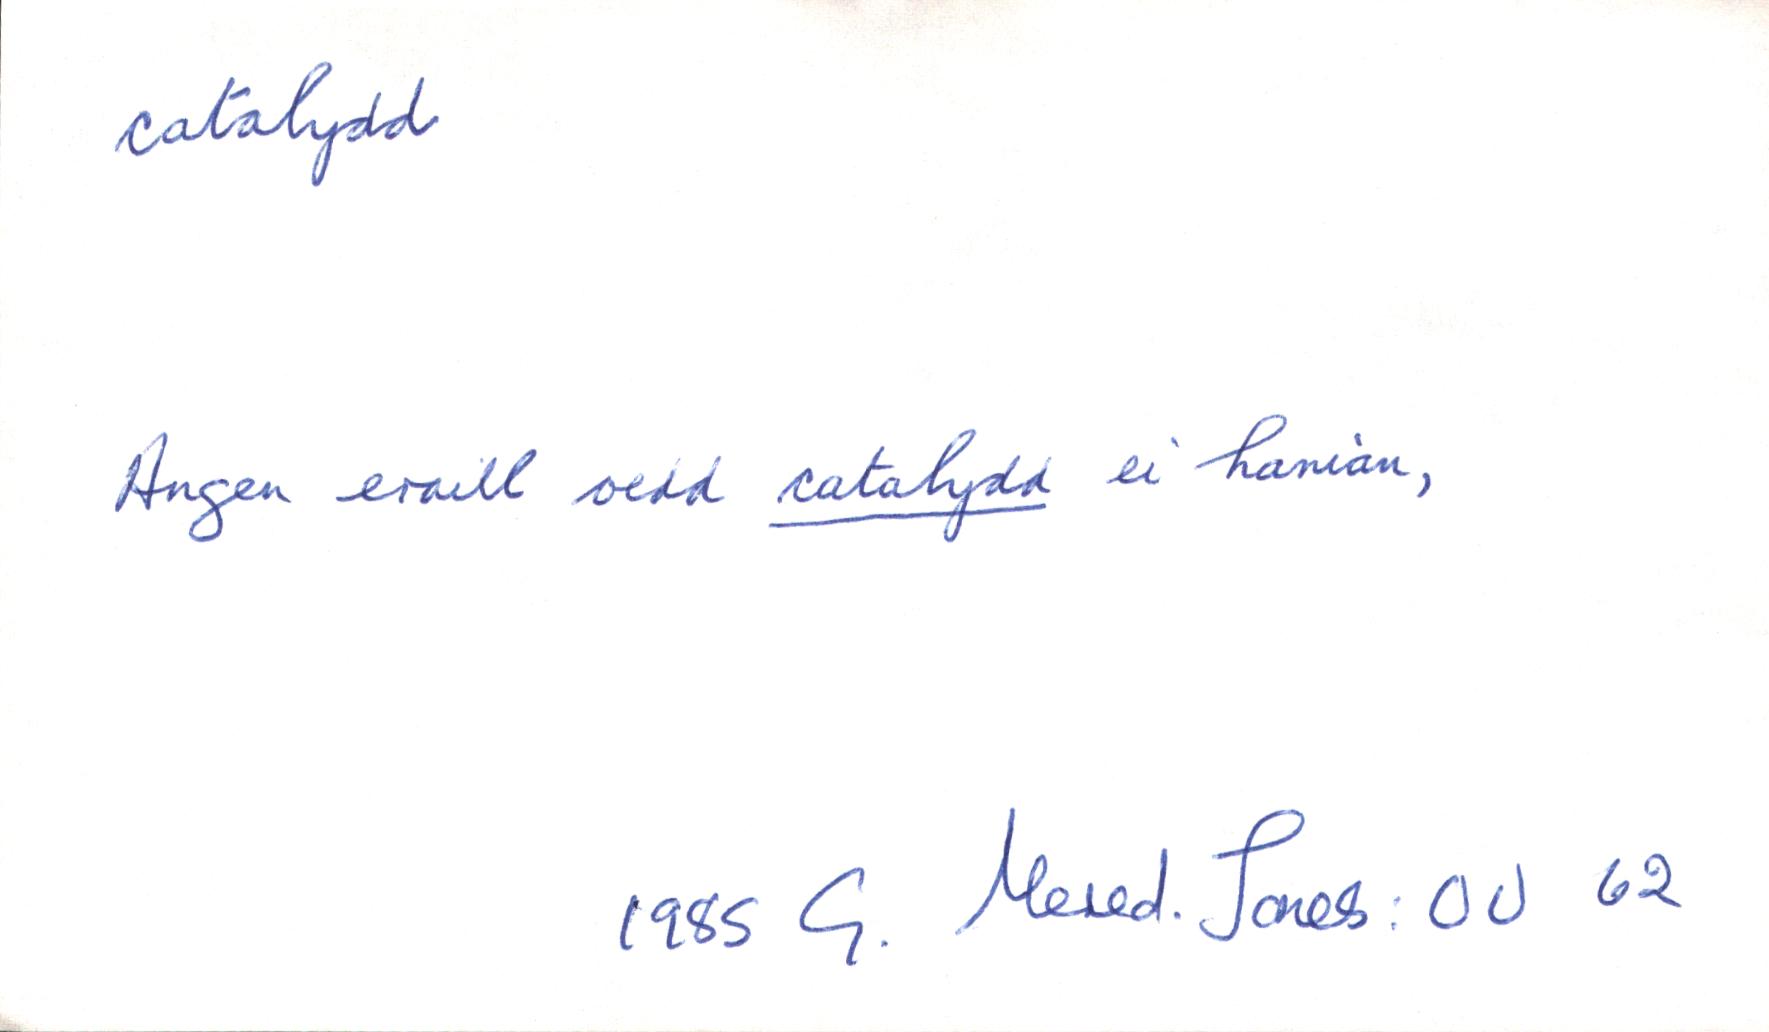 catalydd
Angen eraill oedd catalydd ei hanian,
1985 G. Mered. Jones: OU 62